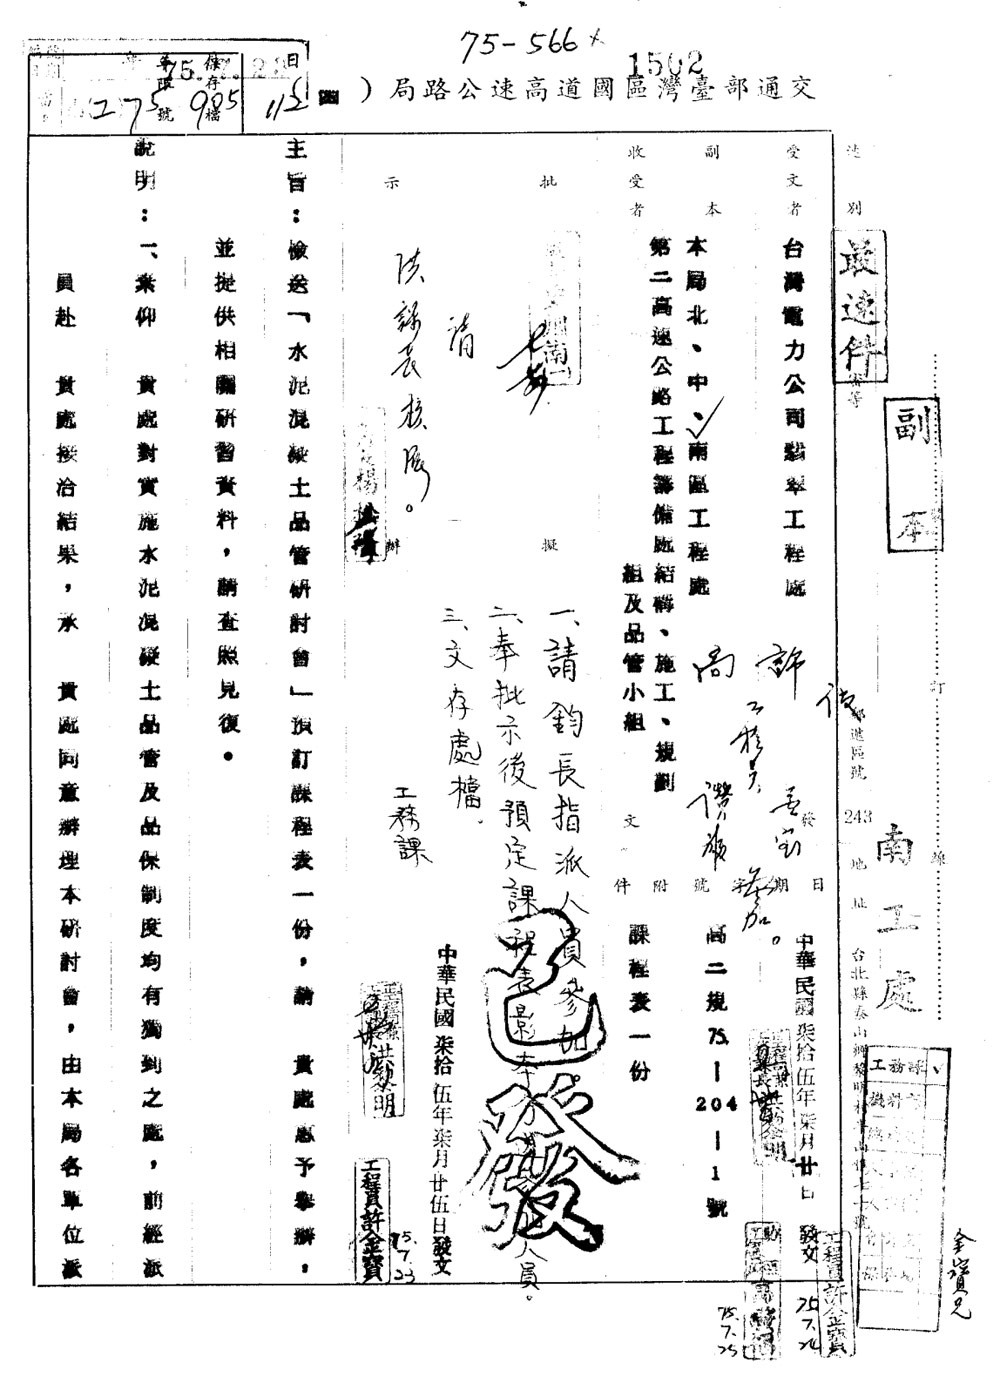 75-566
1502
交通部臺灣區國道高速公路局（
保存
年限
檔
號
275
905
日
112
速別
最速件
副本
郵遞區號 243
地址
南工處
受文者
台灣電力公司翡翠工程處
副本
收受者
本局北、中、南區工程處
第二高速公路工程籌備處結構、施工、規劃
組及品管小組
日期
中華民國柒拾伍年柒月廿日
發文
字號
高二規75.—204—1號
附件
課程表一份
批示
請
洪課長核辦。
擬辦
一、請鈞長指派人員參加
二、奉批示後預定課程表影本分送參加人員。
三、文存處檔。
工務課
已發
中華民國柒拾伍年柒月廿伍日發文
工程員許金寶
75.7.23
主旨：檢送「水泥混凝土品管研討會」預訂課程表一份，請　貴處惠予舉辦，
並提供相關研習資料，請查照見復。
說明：一、素仰　貴處對實施水泥混凝土品管及品保制度均有獨到之處，前經派
員赴　貴處接洽結果，承　貴處同意辦理本研討會，由本局各單位派
工程員許金寶
75.7.25
工務課
金寶兄